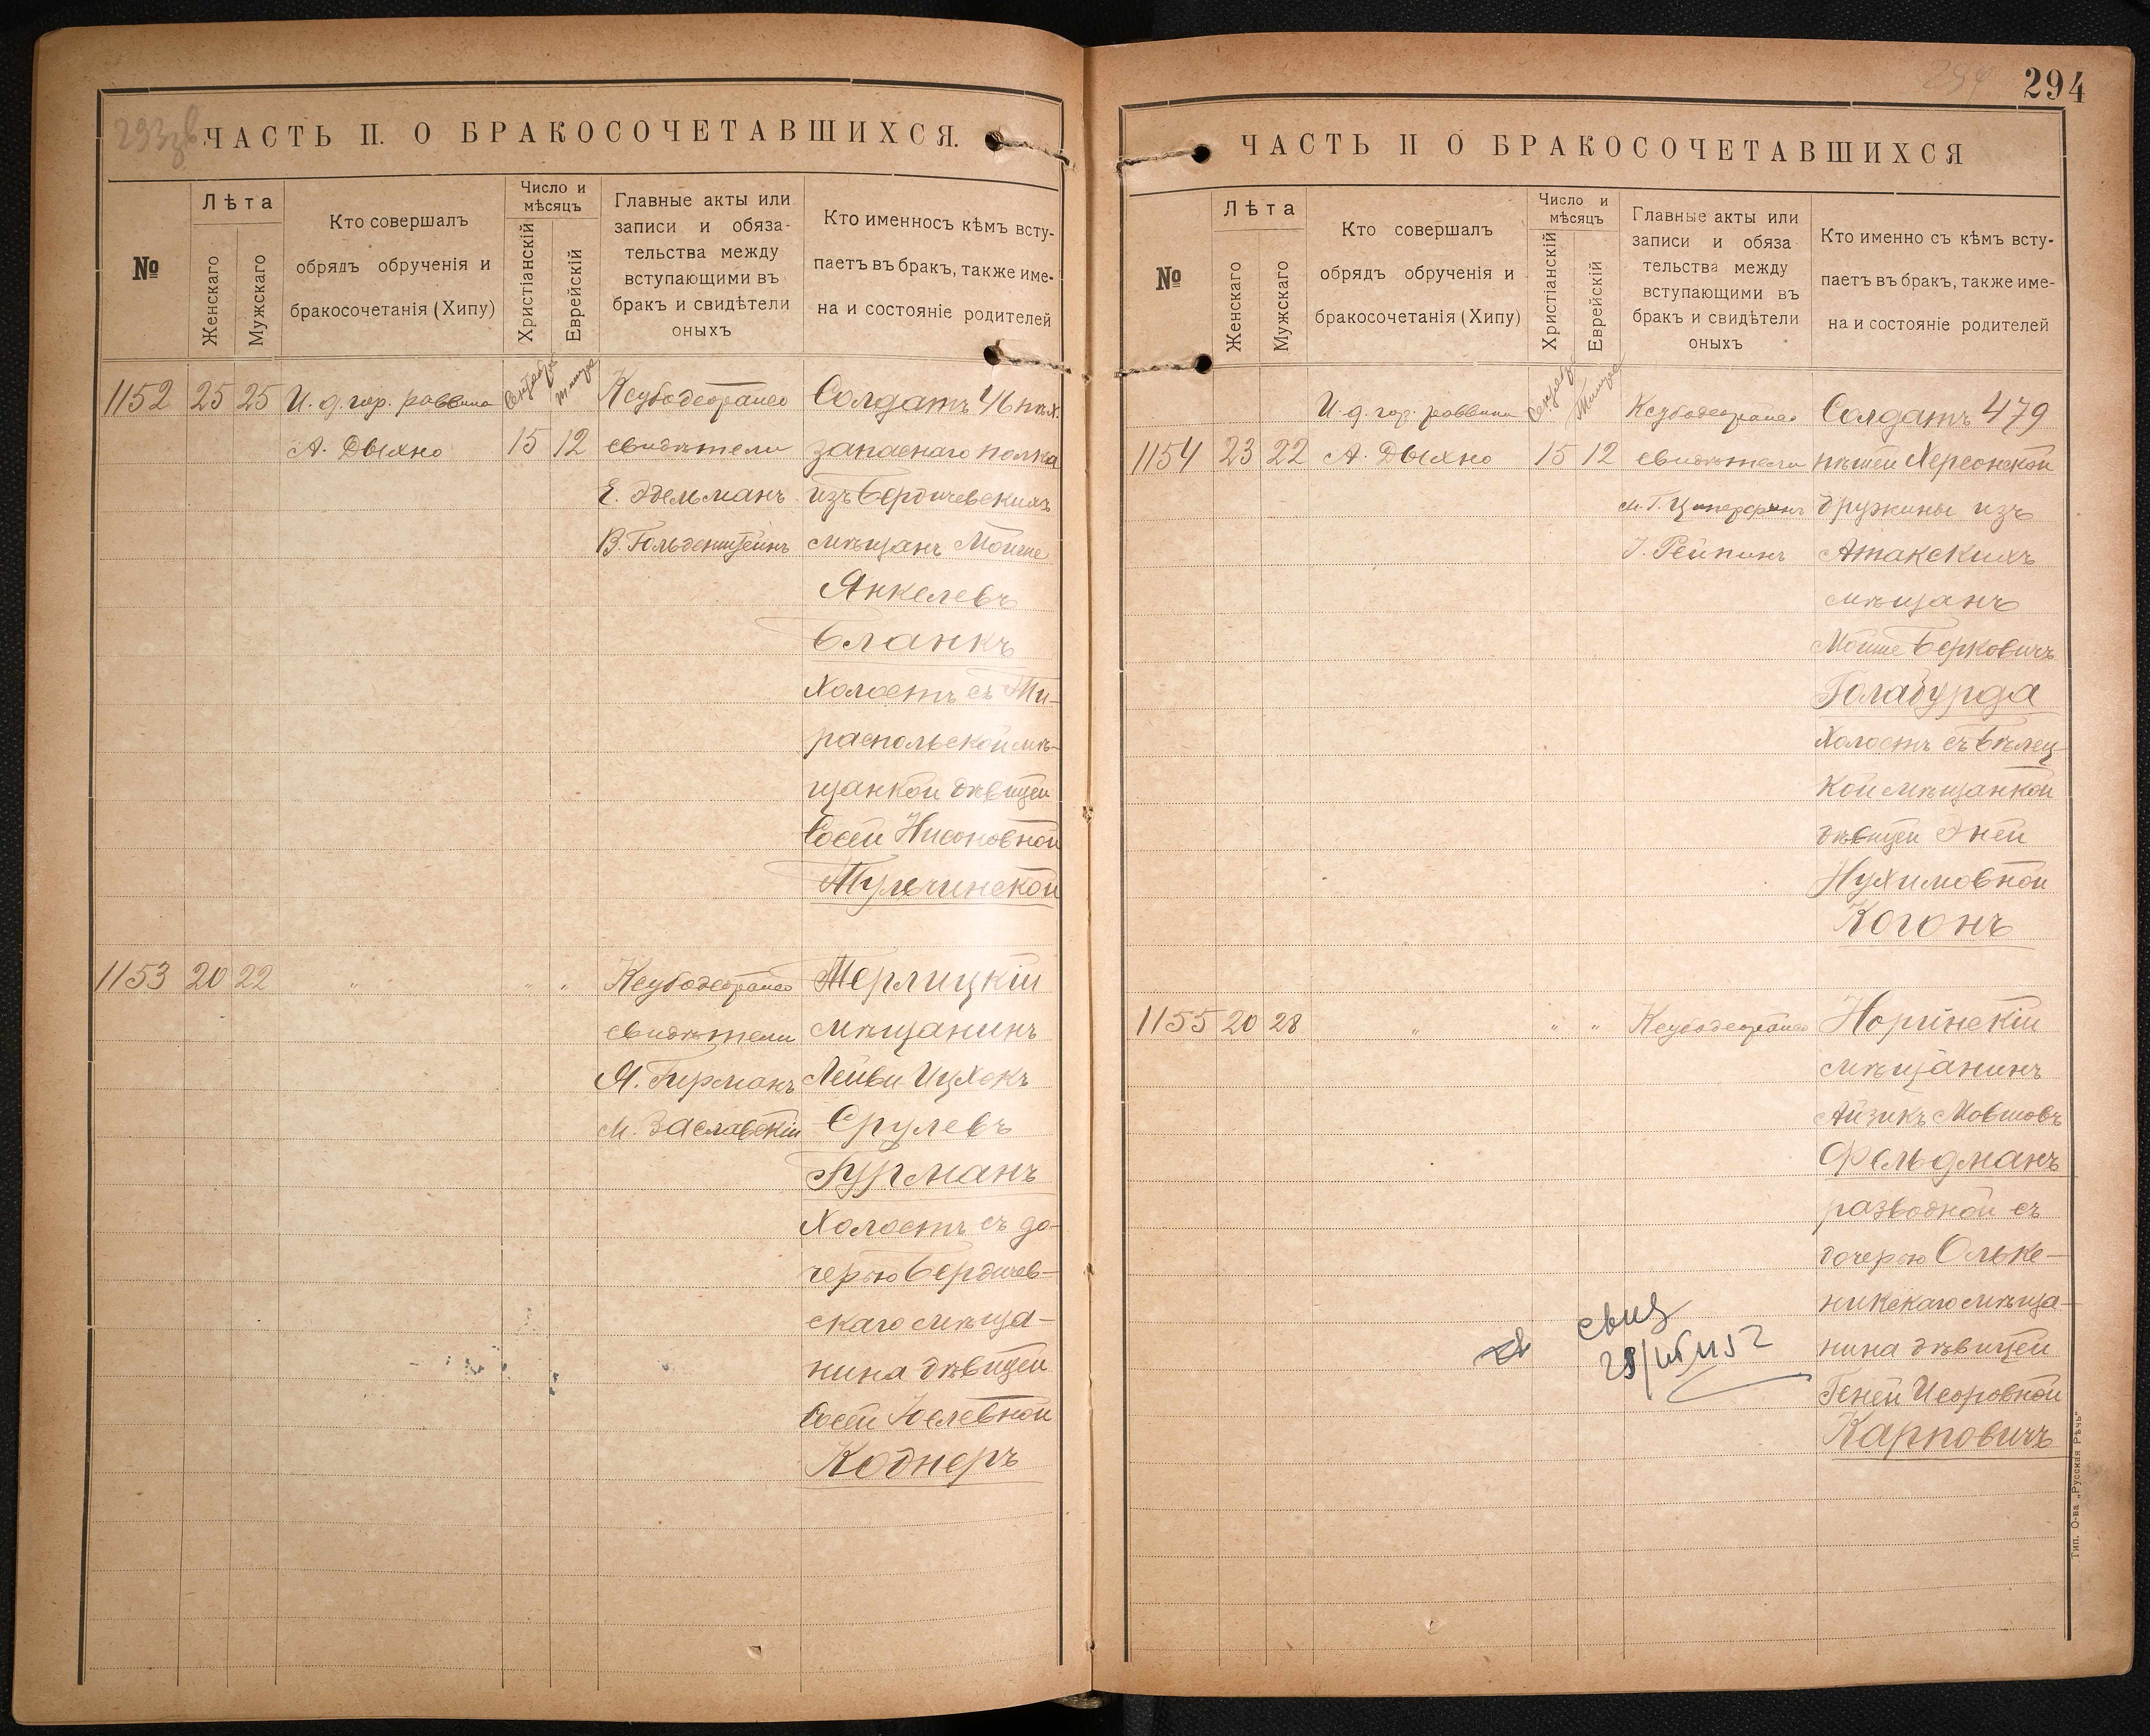 293зв
ЧАСТЬ II. О БРАКОСОЧЕТАВШИХСЯ.
№
Лѣта
Женскаго
Мужскаго
Кто совершалъ
обрядъ обрученія и
бракосочетанія (Хипу)
Число и
мѣсяцъ
Христіанскій
Еврейскій
Главные акты или
записи и обяза-
тельства между
вступающими въ
бракъ и свидѣтели
оныхъ
Кто именносъ кѣмъ всту-
паетъ въ бракъ, также име-
на и состояніе родителей
1152 25 25 И. д. гор. раввина
А. Дыхно
Сентября 15
Тишре 12
свидѣтели
Е. Эдельманъ
В. Гольденштейнъ
Солдатъ 46 пѣх.
запаснаго полка
изъ Бердичевскихъ
мѣщанъ Мойше
Янкелевъ
Бланкъ
Холостъ съ Ти-
распольской мѣ-
щанкой дѣвицей
Босей Нисоновной
Тульчинской
1153 20 22 " " "
свидѣтели
Я. Гирманъ
М. Заславскій
Терлицкій
мѣщанинъ
Лейви Ицхокъ
Срулевъ
Гурманъ
Холостъ съ до-
черью Бердичев-
скаго мѣща-
нина дѣвицей
Босей Іослевной
Коднеръ
294
294
ЧАСТЬ II О БРАКОСОЧЕТАВШИХСЯ
№
Лѣта
Женскаго
Мужскаго
Кто совершалъ
обрядъ обрученія и
бракосочетанія (Хипу)
Число и
мѣсяцъ
Христіанскій
Еврейскій
Главные акты или
записи и обяза
тельства между
вступающими въ
бракъ и свидѣтели
оныхъ
Кто именно съ кѣмъ всту-
паетъ въ бракъ, также име-
на и состояніе родителей
И. д. гор. раввина
1154 23 22 А. Дыхно
Сентября 15
Тишре 12
свидѣтели
М. Г.
І. Рейпинъ
Солдатъ 479
пѣшей Херсонской
дружины изъ
Атакскихъ
мѣщанъ
Мойше Берковичъ
Голабурда
Холостъ съ Бѣлец-
кой мѣщанкой
дѣвицей Эней
Нухимовной
Когонъ
1155 20 28 " " "
Норинскій
мѣщанинъ
Айзикъ Мовшовъ
Фельдманъ
разводной съ
дочерью Ольке-
никскаго мѣща-
нина дѣвицей
Геней Исоровной
Карповичъ
Тип. О-ва „Русская Рѣчь"